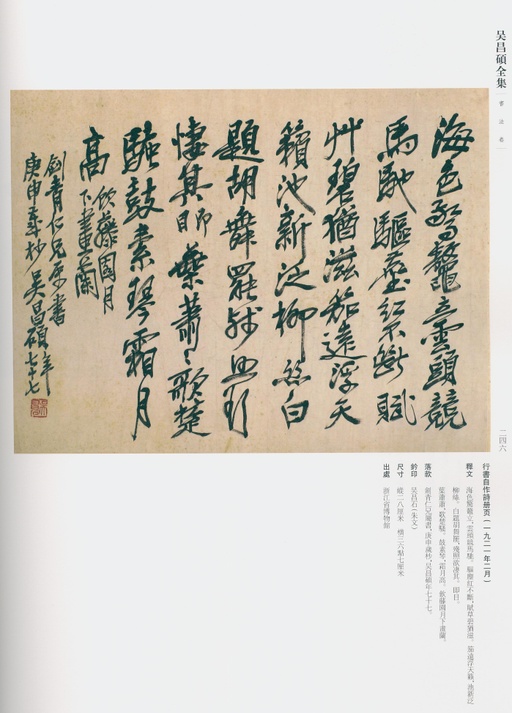 吴昌碩全集
書法卷
海色驚鼇立雲頭競
馬馳驅塵紅不斷賦
艸碧猶滋笳遠浮天
籟池新泛柳絲白
題胡舞罷
悽其即 葉蕭蕭歌楚
騷鼓素琴霜月
高
飲藤園月
下畫蘭
劍青仁兄屬書
庚申歲杪吴昌碩年七十七
二四六
行書自作詩册页(一九二一年二月)
釋文 海色驚鼇立,雲頭競馬馳。驅塵紅不斷,賦草碧猶滋。笳遠浮天籟,池新泛
柳絲。白題胡舞罷,殘照欲凄其。即日。
葉蕭蕭,歌楚騷。鼓素琴,霜月高。飲藤園月下畫蘭。
落款 劍青仁兄屬書,庚申歲杪,吴昌碩年七十七。
鈐印 吴昌石(朱文)
尺寸 縱二八厘米 橫三六點七厘米
出處 浙江省博物館